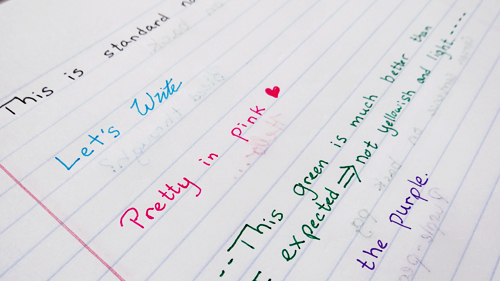 This is standard
Let's Write
Pretty in Pink ♥
--- This green is much better than
expected ⇒ not yellowish and light ----
the purple.